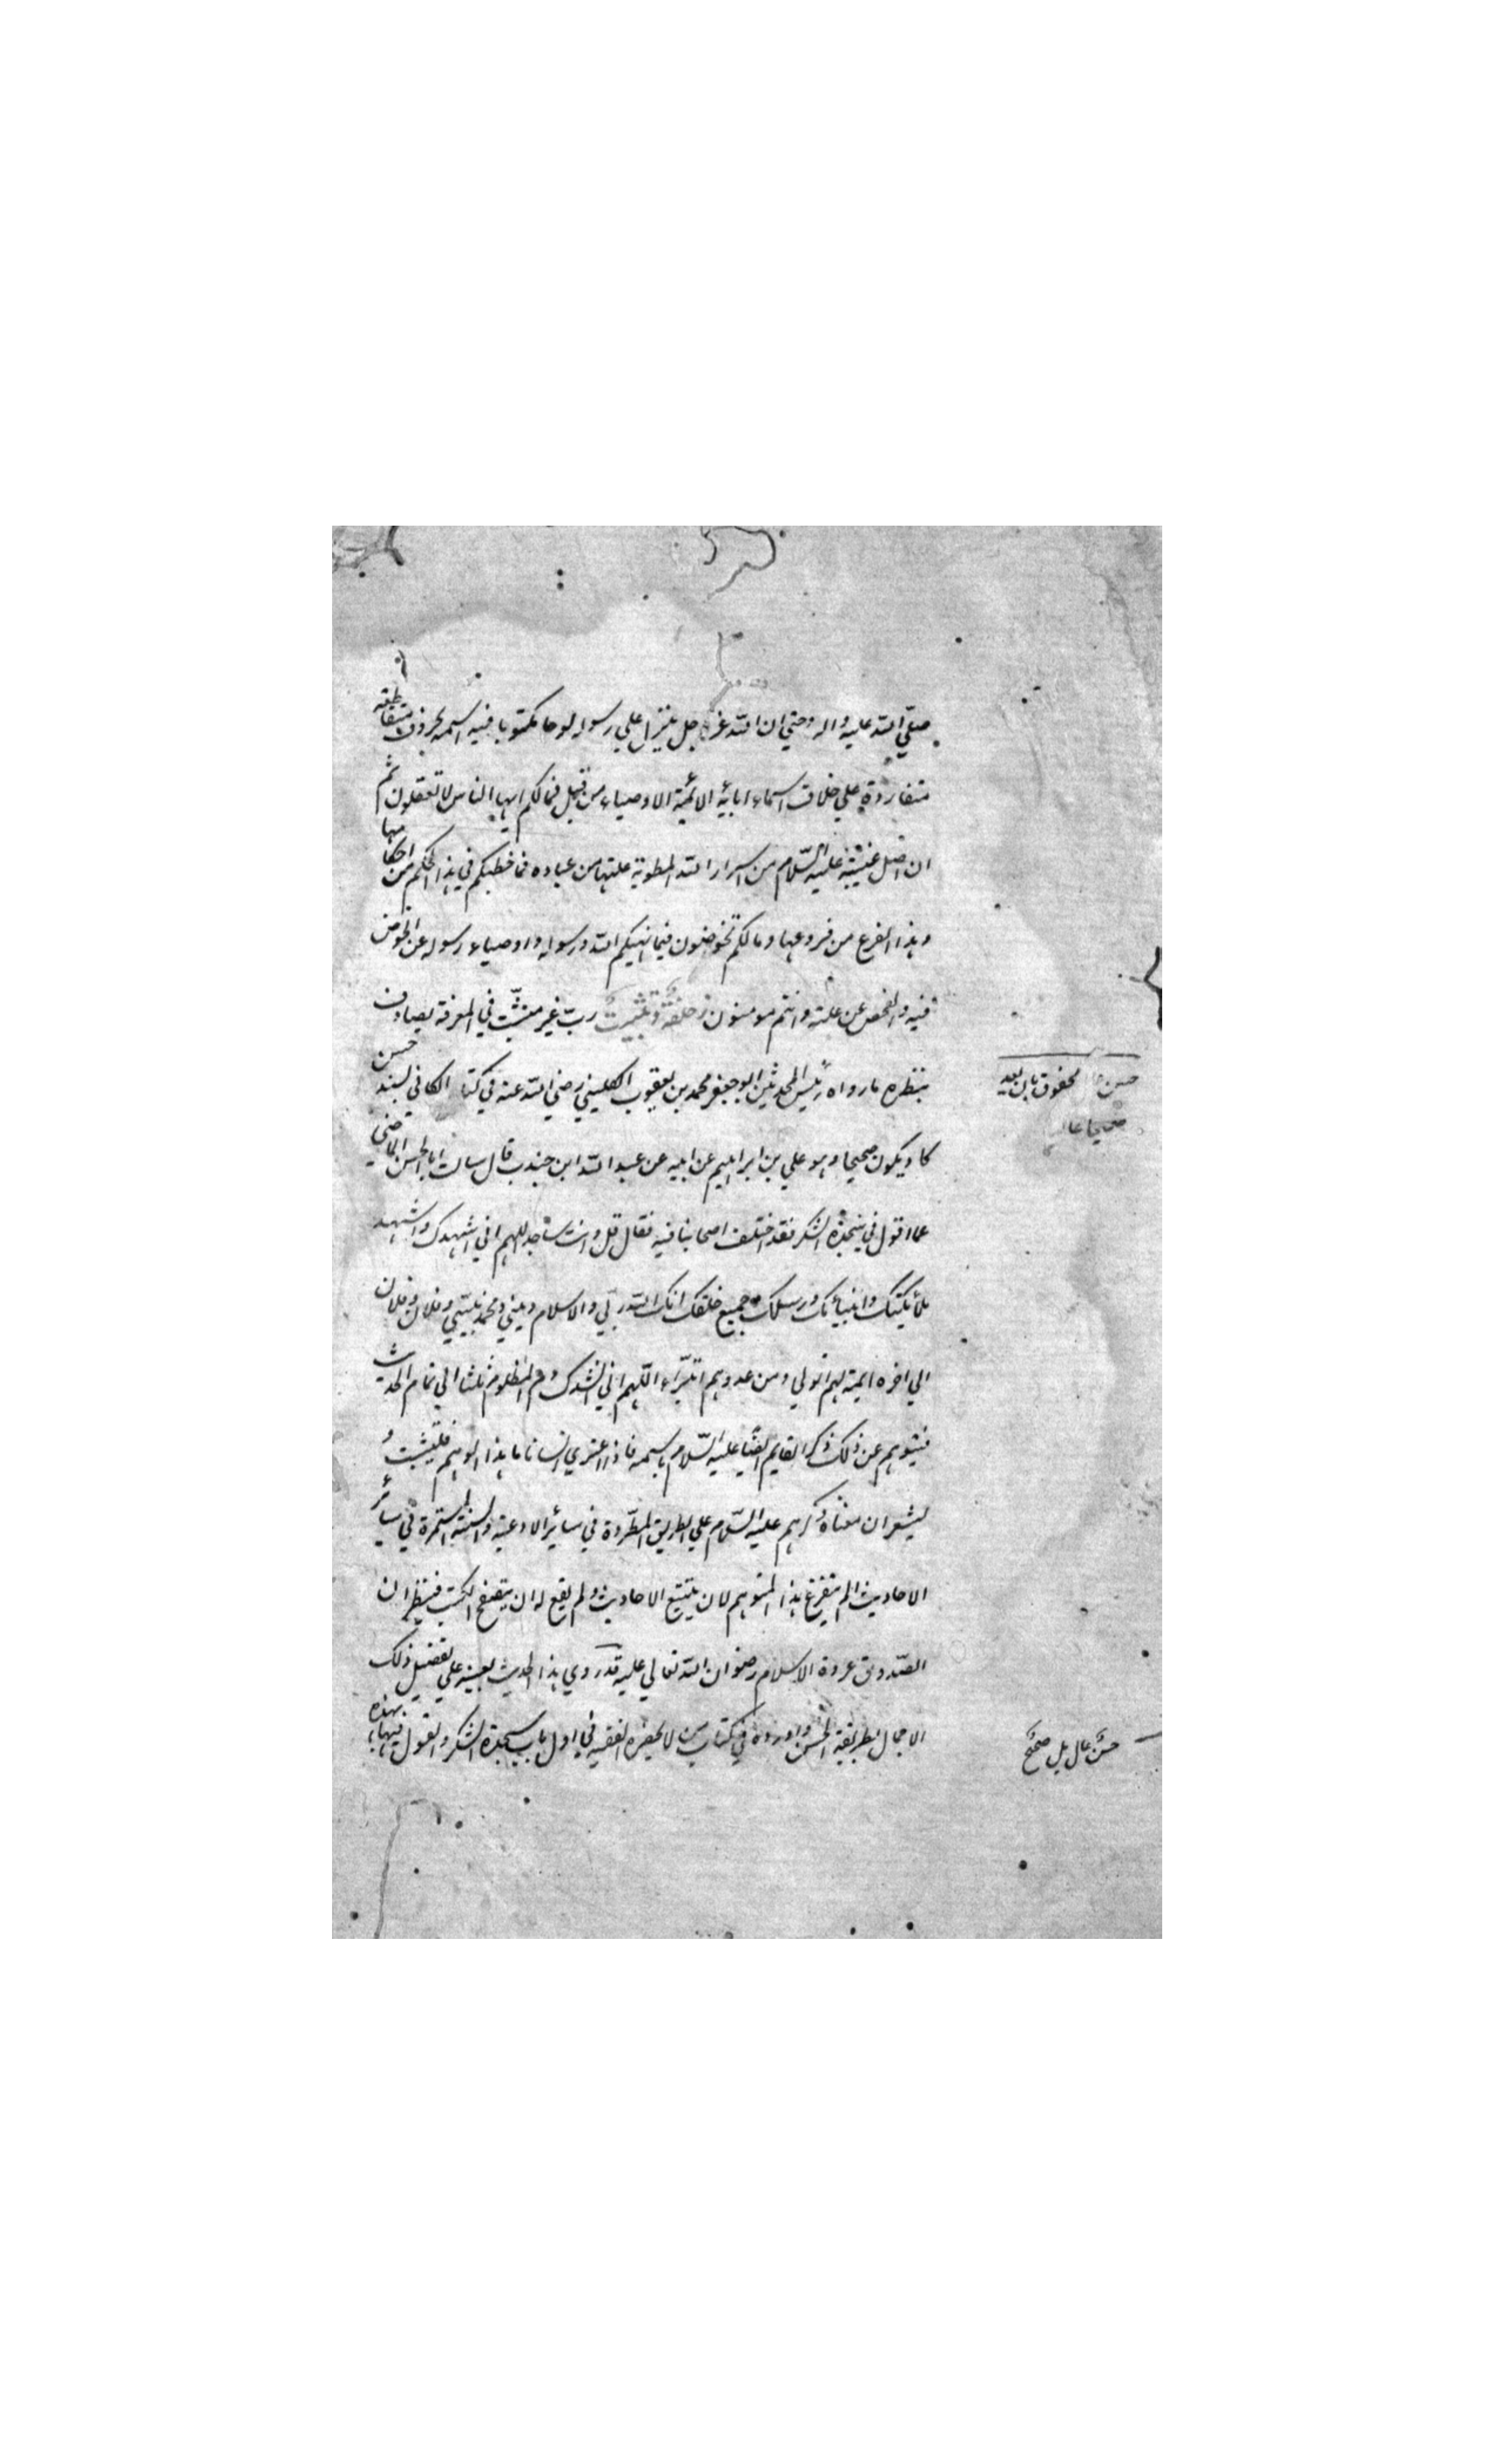 صلّي الله عليه واله وحتي ان الله عز وجل ينزل علي رسوله لوحا مكتوبا فيه اسمه بحروف متقاطعة
متفاردة علي خلاف اسماء ابائه الائمة الاوصياء من قبل فمالكم ايها الناس لا تعقلون ثم
ان اصل غيبته عليه السّلام من اسرار الله المطوية علتها من عباده فما خطبكم في هذا الحكم من احكامها
وهذا الفرع من فروعها ومالكم تخوضون فيما نهيكم الله ورسوله واوصياء رسوله عن الخوض
فيه والفحص عن علته وانتم مومنون ربّ غير متثبّت في المعرفة يصادف
بنظره مارواه رئيس المحدثين ابو جعفر محمد بن يعقوب الكليني رضي الله عنه في كتاب الكافي بسند حسن
كاد يكون صحيحا وهو علي بن ابراهيم عن ابيه عن عبد الله ابن جندب قال سالت ابا الحسن الماضي
عما اقول في سجدة الشكر فقد اختلف اصحابنا فيه فقال قل وانت ساجد اللهم اني اشهدك واشهد
ملائكتك وانبيائك ورسلك وجميع خلقك انك الله ربّي والاسلام ديني ومحمد نبيّي وفلان وفلان
الي اخره ايمتي بهم اتولي ومن عدوهم اتبرّاء اللّهم اني انشدك دم المظلوم ثلثا الي تمام الحديث
فيتوهم عن ذلك ذكر القايم ايضا عليه السّلام باسمه فاذا اعتري انسانا ما هذا الوهم فليتثبت و
ليشعر ان مغناه ذكرهم عليه السّلام علي الطريق المطّردة في سائر الادعية والسنة المستمرة في سائر
الاحاديث الم يتفرغ هذا المتوهم لان يتتبع الاحاديث ولم يقع له ان يتصفح الكتب فينظر ان
الصّدوق عروة الاسلام رضوان الله تعالي عليه قد روي هذا الحديث بعينه علي تفصيل ذلك
الاجمال بطريقة الحسن واورده في كتاب من لا يحضره الفقيه في اول باب سجدة الشكر والقول فيها بهذه
حسن محفوق بان يعد
صحيحا عال
حسن عال بل صحيح